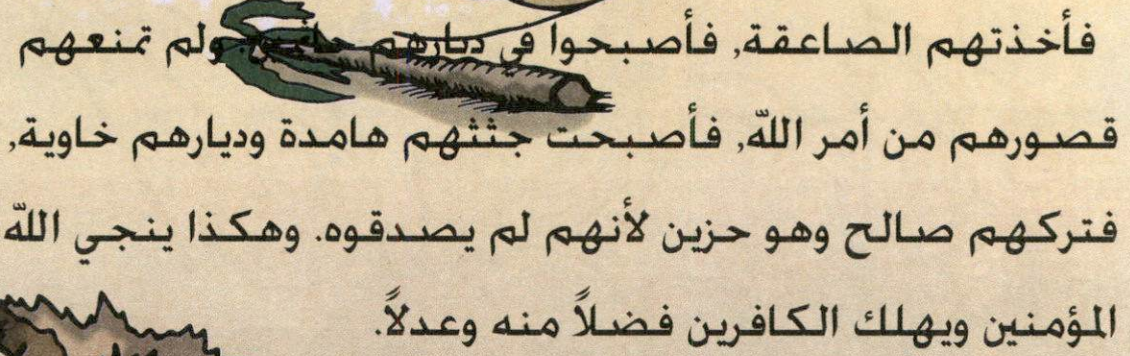 فأخذتهم الصاعقة, فأصبحوا في ديارهم جاثمين. ولم تمنعهم
قصورهم من أمر الله, فأصبحت جثثهم هامدة وديارهم خاوية,
فتركهم صالح وهو حزين لأنهم لم يصدقوه. وهكذا ينجي الله
المؤمنين ويهلك الكافرين فضلاً منه وعدلاً.